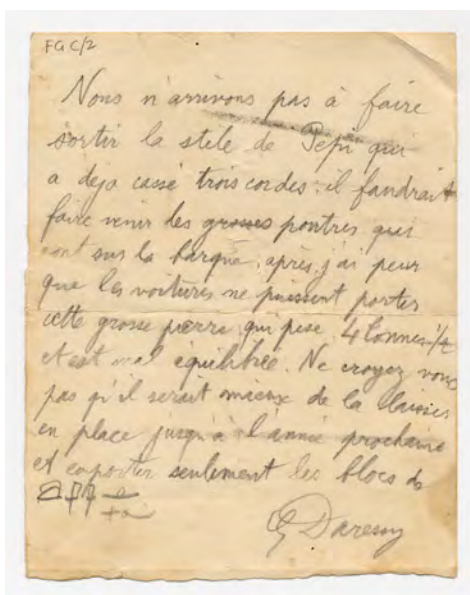 FGC/2
Nous n'arrivons pas à faire
sortir la stele de Pepi qui
a deja cassé trois cordes; il faudrait
faire venir les grosses poutres qui
sont sur la barque, après, j'ai peur
que les voitures ne puissent porter
cette grosse pierre qui pese 4 tonnes 1/2
et est mal équilibrée. Ne croyez vous
pas qu'il serait mieux de la laisser
en place jusqu'à l'année prochaine
et emporter seulement les blocs de
G Daressy